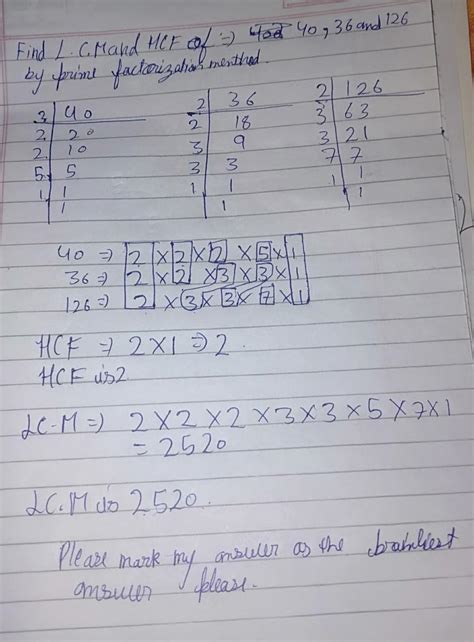 Find L.C.M and HCF of ⇒ 40, 36 and 126
by prime factorization menthod.
3 | 40
2 | 20
2 | 10
5 | 5
1 | 1
1
2 | 36
2 | 18
3 | 9
3 | 3
1 | 1
1
2 | 126
3 | 63
3 | 21
7 | 7
1 | 1
1
40 ⇒ 2 × 2 × 2 × 5 × 1
36 ⇒ 2 × 2 × 3 × 3 × 1
126 ⇒ 2 × 3 × 3 × 7 × 1
HCF ⇒ 2 × 1 ⇒ 2.
HCF is 2
LC-M ⇒ 2 × 2 × 2 × 3 × 3 × 5 × 7 × 1
= 2520
LC.M is 2520.
Please mark my answer as the brainliest
answer please.